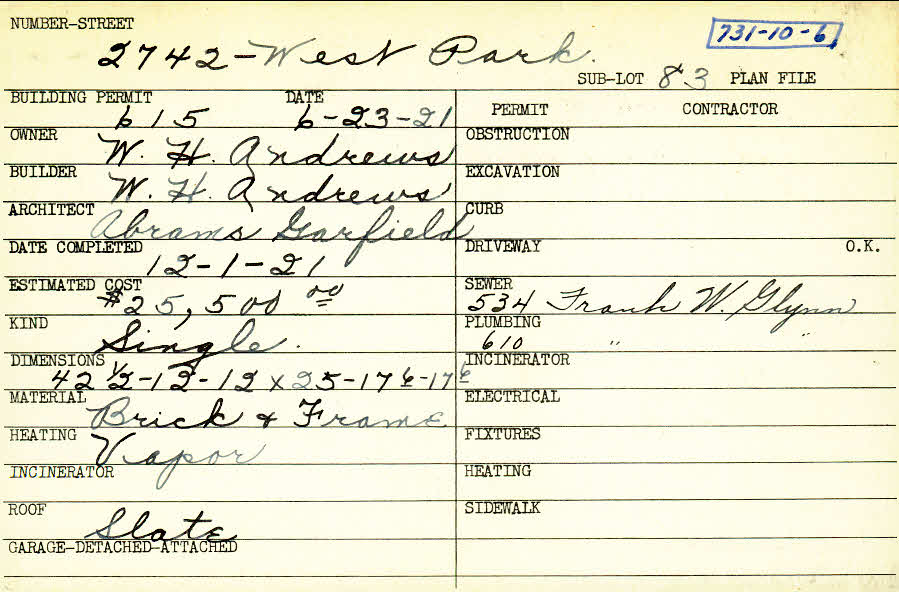 NUMBER-STREET
2742-West Park.
731-10-6
SUB-LOT 83 PLAN FILE
BUILDING PERMIT DATE
615 6-23-21
OWNER
W. H. Andrews
BUILDER
W. H. Andrews
ARCHITECT
Abrams Garfield
DATE COMPLETED
12-1-21
ESTIMATED COST
#25,500 00
KIND
Single.
DIMENSIONS
42 1/2-12-12 x 25-17 6-17 6
MATERIAL
Brick & Frame
HEATING
Vapor
INCINERATOR
ROOF
Slate
GARAGE-DETACHED-ATTACHED
PERMIT CONTRACTOR
OBSTRUCTION
EXCAVATION
CURB
DRIVEWAY O.K.
SEWER
534 Frank W. Glynn
PLUMBING
610 " "
INCINERATOR
ELECTRICAL
FIXTURES
HEATING
SIDEWALK